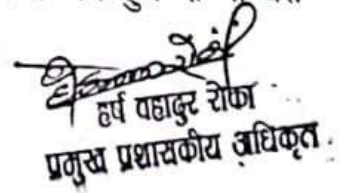 हर्ष वहादुर रोका
प्रमुख प्रशासकीय अधिकृत